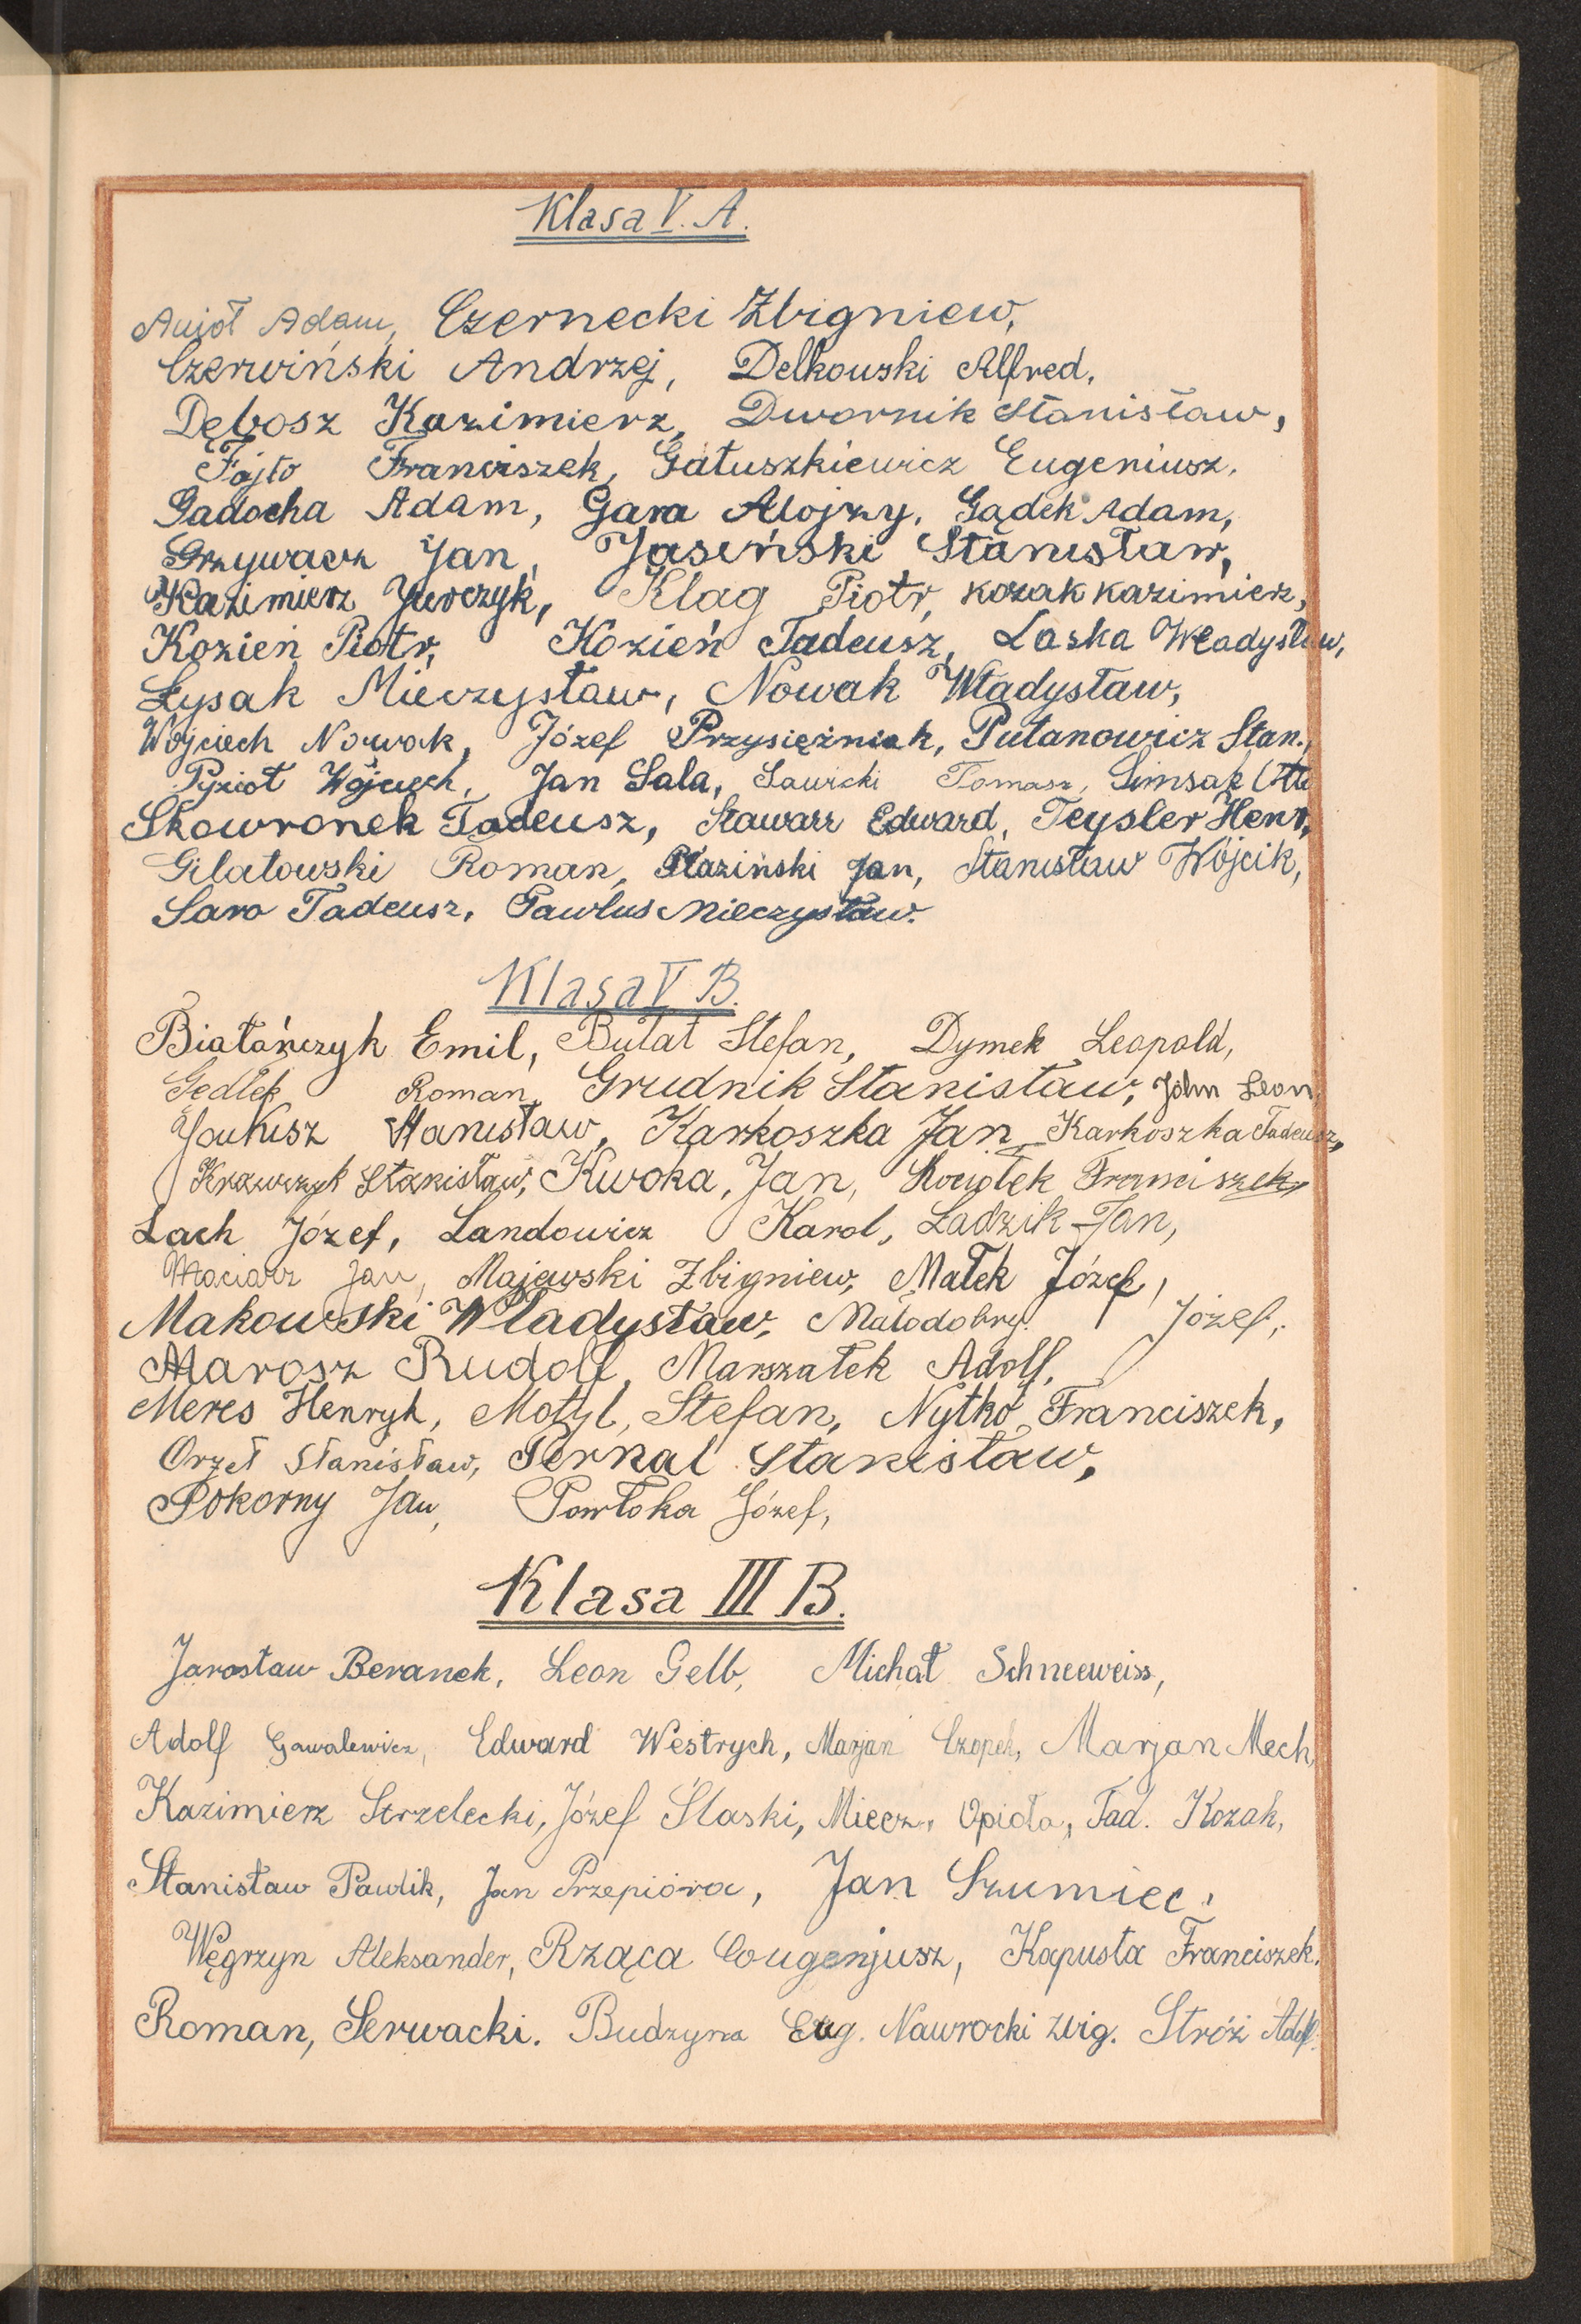 Klasa V. A.
Anioł Adam, Czernecki Zbigniew,
Czerwiński Andrzej, Delkowski Alfred,
Dębosz Kazimierz, Dwornik Stanisław,
Fajto Franciszek, Gałuszkiewicz Eugeniusz,
Gadocha Adam, Gara Alojzy, Gądek Adam,
Grzywacz Jan, Jasiński Stanisław,
Kazimierz Jurczyk, Klag Piotr, Kozak Kazimierz,
Kozień Piotr, Kozień Tadeusz, Laska Władysław,
Łysak Mieczysław, Nowak Władysław,
Wojciech Nowak, Józef Przysiężniak, Putanowicz Stan.,
Pyzioł Wojciech, Jan Sala, Sawicki Tomasz, Simsak Otto
Skowronek Tadeusz, Stawarz Edward, Teysler Henr.
Gilatowski Roman, Płaziński Jan, Stanisław Wójcik,
Saro Tadeusz, Pawlus Mieczysław.
Klasa V B.
Białończyk Emil, Bułat Stefan, Dymek Leopold,
Gędłek Roman, Grudnik Stanisław, John Leon,
Janusz Stanisław, Karkoszka Jan, Karkoszka Tadeusz,
Krawczyk Stanisław, Kwoka, Jan, Kociołek Franciszek,
Lach Józef, Landowicz Karol, Ładzik Jan,
Maciarz Jan, Majewski Zbigniew, Małek Józef,
Makowski Władysław, Małodobry Józef,
Marosz Rudolf, Marszałek Adolf,
Meres Henryk, Motyl, Stefan, Nytko Franciszek,
Orzeł Stanisław, Pernal Stanisław,
Pokorny Jan, Powłoka Józef,
Klasa III B.
Jarosław Beranek, Leon Gelb, Michał Schneeweiss,
Adolf Gawalewicz, Edward Westrych, Marjan Czopek, Marjan Mech,
Kazimierz Strzelecki, Józef Ślaski, Miecz. Opioła, Tad. Kozak,
Stanisław Pawlik, Jan Przepióra, Jan Szumiec,
Węgrzyn Aleksander, Rząca Eougenjusz, Kapusta Franciszek.
Roman, Serwacki. Budzyna Eug. Nawrocki Zbig. Stróż Adolf.